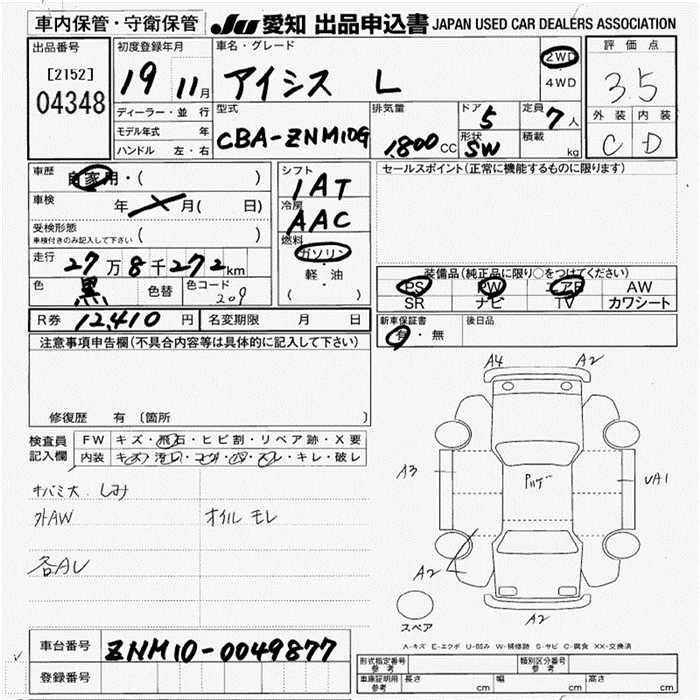 車内保管・守衛保管 JU 愛知 出品申込書 JAPAN USED CAR DEALERS ASSOCIATION
出品番号
[2152]
04348
初度登録年月
19 11月
車名・グレード
アイシス L
2WD
4WD
評価点
3.5
外装 内装
C D
ディーラー・並行
モデル年式 年
ハンドル 左・右
型式
CBA-ZNM10G
排気量
1800CC
ドア
5
形状
SW
定員
7人
積載
kg
車歴
自家用・( )
車検
年 月( 日)
受検形態
車検付きのみ記入して下さい ( )
走行
27万8千272km
色
黒
色替
色コード
209
シフト
1AT
冷房
AAC
燃料
ガソリン
軽・油
( ・ )
セールスポイント(正常に機能するものに限ります)
装備品(純正品に限り○をつけてください)
PS PW エアB AW
SR ナビ TV カワシート
R券 12,410円 名変期限 月 日
新車保証書
有・無
後日品
注意事項申告欄(不具合内容等は具体的に記入して下さい)
修復歴 有 (箇所
検査員
記入欄
FW キズ・飛石・ヒビ割・リペア跡・X要
内装 キズ・汚レ・コゲ・穴・スレ・キレ・破レ
キバミ大.しみ
外AW オイルモレ
各AU
A4 A2
A3
UA1
A2
A2
スペア
A-キズ E-エクボ U-凹み W-補修跡 S-サビ C-腐食 XX-交換済
車台番号 ZNM10-0049877
登録番号
形式指定番号
参考
類別区分番号
参考
車庫証明用
参考
長さ cm 幅 cm 高さ cm